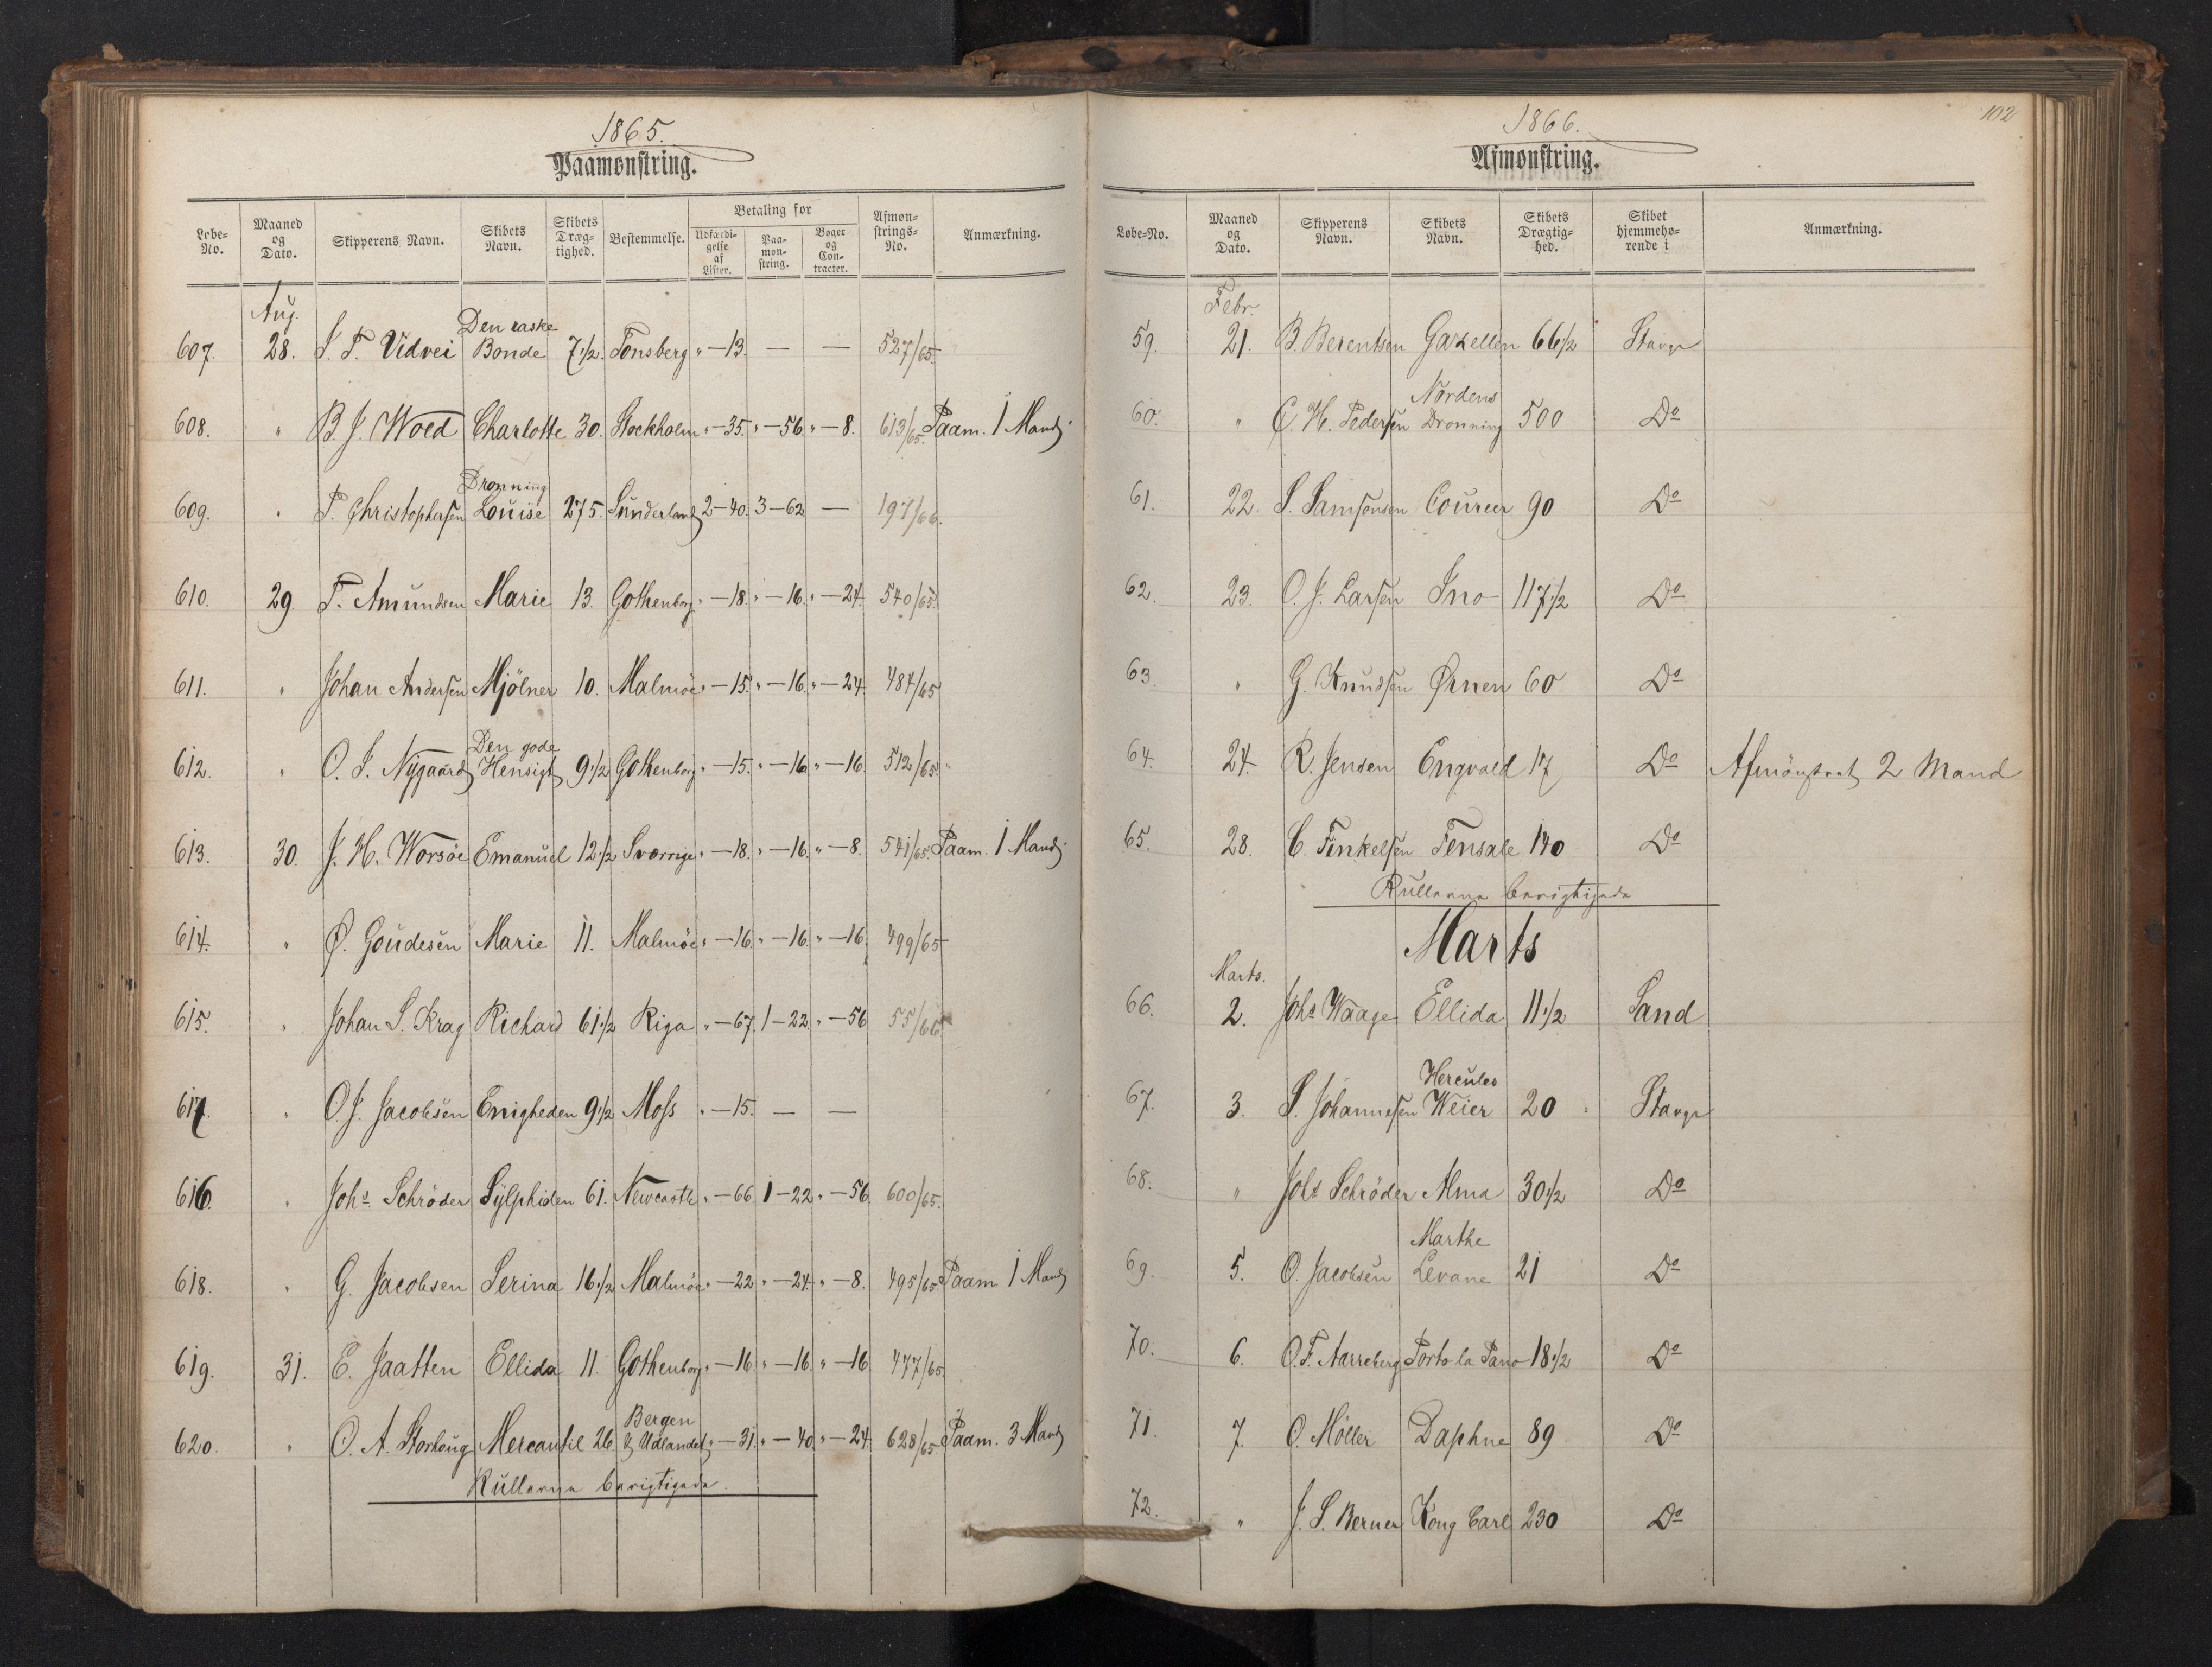 1865.
Paamønstring.
Løbe-No. Maaned og Dato. Skipperens Navn. Skibets Navn. Skibets Dræg-tighed. Bestemmelse. Betaling for Udfærdi-gelse af Lister. Paa-møn-string. Bøger og Con-tracter. Afmøn-strings-No. Anmærkning.
Aug.
607. 28. S. T. Vidvei Den raske Bonde 7 1/2. Tønsberg " — 13. — — 527/65.
608. " B. J. Woed Charlotte 30. Stockholm " — 35. " — 56. " — 8. 613/65. Paam. 1 Mand
609. " P. Christophersen Dronning Louise 275. Sunderland 2 — 40. 3 — 62 — 197/66.
610. 29 T. Amundsen Marie 13. Gothenborg " — 18. " — 16. " — 24. 540/65.
611. " Johan Andersen Mjölner 10. Malmöe " — 15. " — 16. " — 24. 484/65
612. " O. J. Nÿgaard Den gode Hensigt 9 1/2 Gothenborg " — 15. " — 16. " — 16. 512/65.
613. 30. J. H. Worsöe Emanuel 12 1/2 Sverrige " — 18. " — 16. " — 8. 541/65. Paam. 1 Mand
614. " O. Goudesen Marie 11. Malmöe " — 16. " — 16. " — 16. 499/65
615. " Johan S. Krag Richard 61 1/2 Riga " — 67. 1 — 22. " — 56 55/66.
617. " O. J. Jacobsen Enigheden 9 1/2 Moss " — 15. — —
616. " Johs. Schröder Sÿlphiden 61. Newcastle " — 66. 1 — 22. " — 56. 600/65.
618. " G. Jacobsen Serina 16 1/2 Malmöe " — 22. " — 24. " — 8. 495/65. Paam 1 Mand
619. 31. E. Jaatten Ellida 11. Gothenborg " — 16. " — 16. " — 16 477/65.
620. " O. A. Storhoug Mercantil 26. Bergen & Udlandet " — 31. " — 40. " — 24. 628/65. Paam. 3 Mand
Rullerne berigtigede.
1866.
102
Afmønstring.
Løbe-No. Maaned og Dato. Skipperens Navn. Skibets Navn. Skibets Drægtig-hed. Skibet hjemmehø-rende i Anmærkning.
Febr.
59. 21. B. Berentsen Gazellen 66 1/2 Stavgr
60. " C. H. Pedersen Nordens Dronning 500 Do
61. 22. S. Samsonsen Coureer 90 Do
62. 23. O. J. Larsen Ino 117 1/2 Do
63. " G. Knudsen Ørnen 60 Do
64. 24. R. Jensen Engvald 17 Do Afmönstret 2 Mand
65. 28. C. Finkelsen Tensale 140 Do
Rullerne berigtigede
Marts
Marts.
66. 2. Johs. Waage Ellida 11 1/2 Sand
67. 3. S. Johannesen Hercules Weier 20 Stavgr
68. " Johs. Schröder Alma 30 1/2 Do
69. 5. O. Jacobsen Marthe Levane 21 Do
70. 6. O. F. Aarreberg Porto la Pano 18 1/2 Do
71. 7. O. Möller Daphne 89 Do
72. " J. S. Berner Kong Carl 230 Do